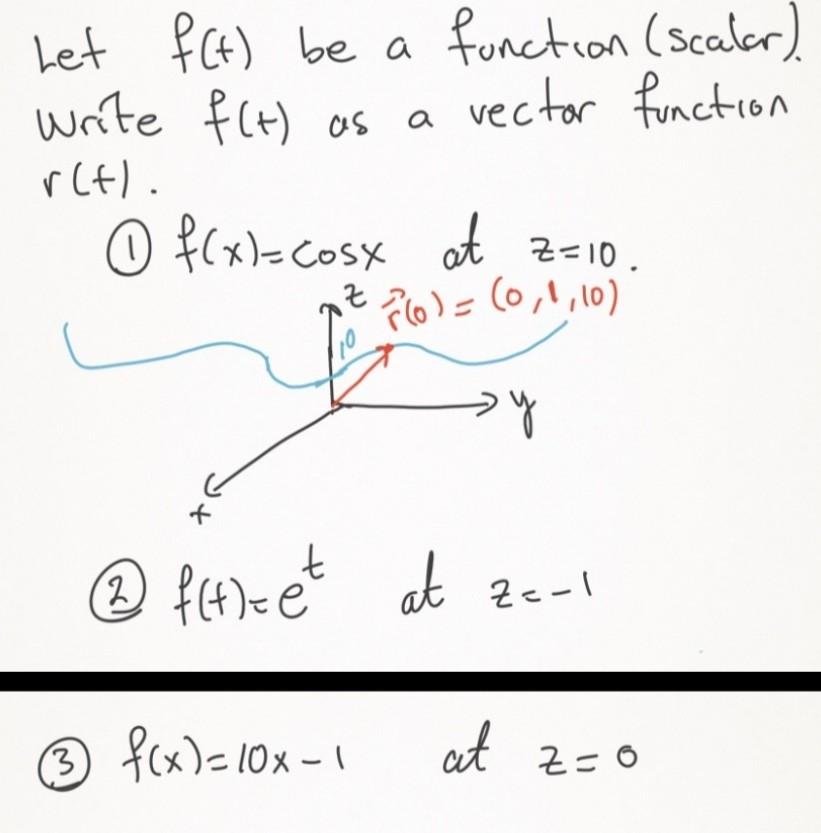 Let f(t) be a function (scalar).
Write f(t) as a vector function
r(t).
① f(x)=cosx at z=10.
z r⃗(0) = (0,1,10)
10
y
x
② f(t)=e^t at z=-1
③ f(x)=10x-1 at z=0